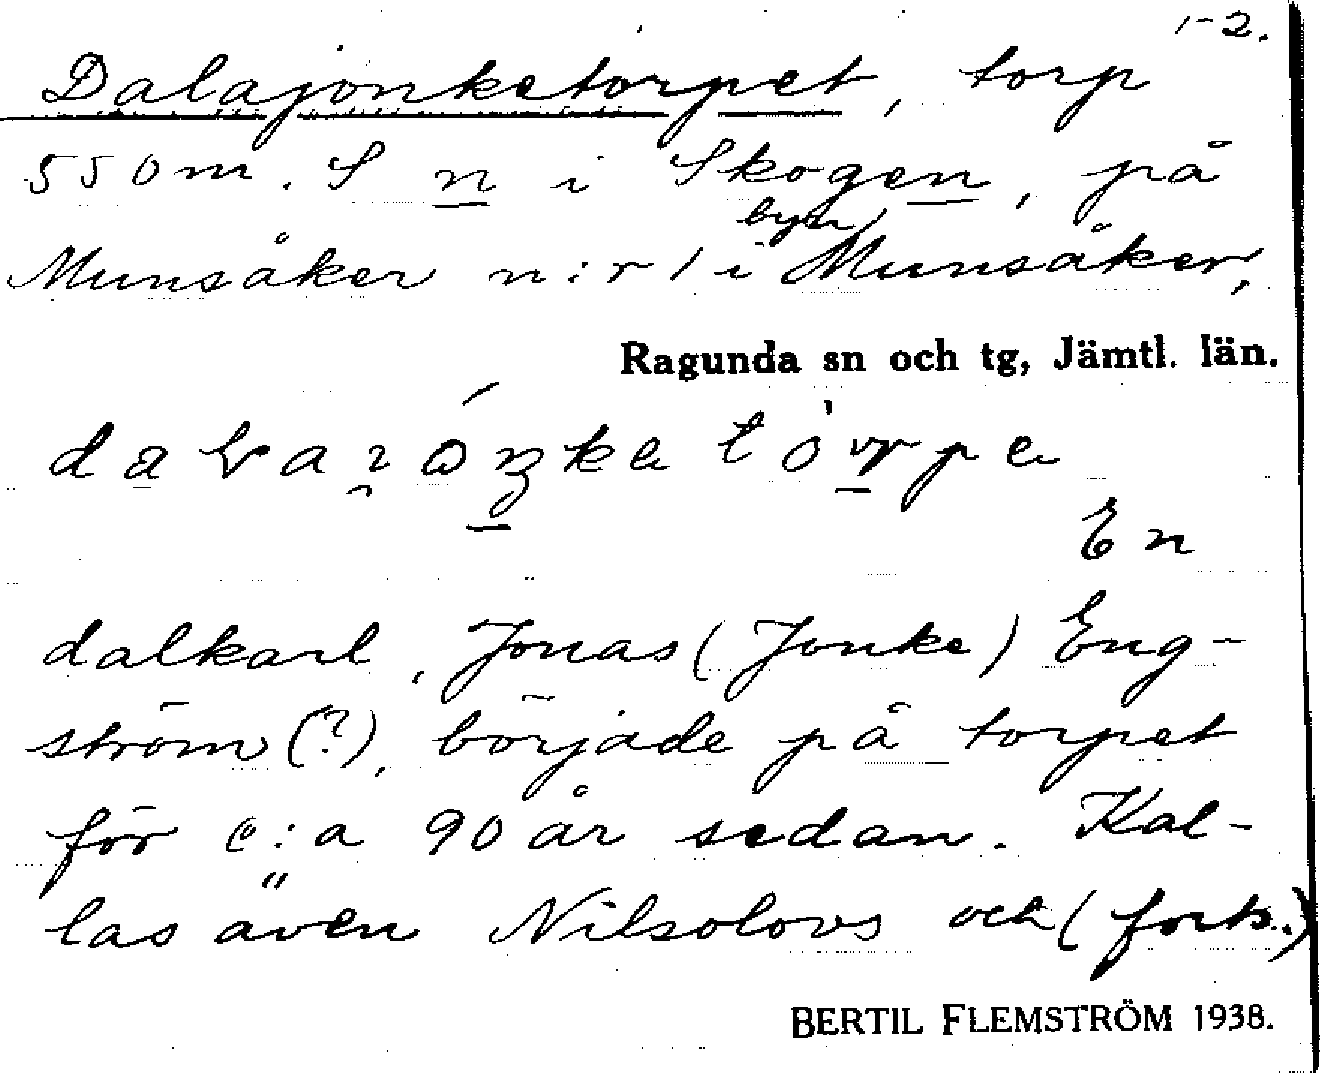 1-2.
Dalajonketorpet, torp
550 m. S n i Skogen, på
byn
Munsåker n:r 1 i Munsåker,
Ragunda sn och tg, Jämtl. län.
En
dalkarl, Jonas (Jonke) Eng-
ström (?), började på torpet
för c:a 90 år sedan. Kal-
las även Nilsolovs och (forts.)
BERTIL FLEMSTRÖM 1938.